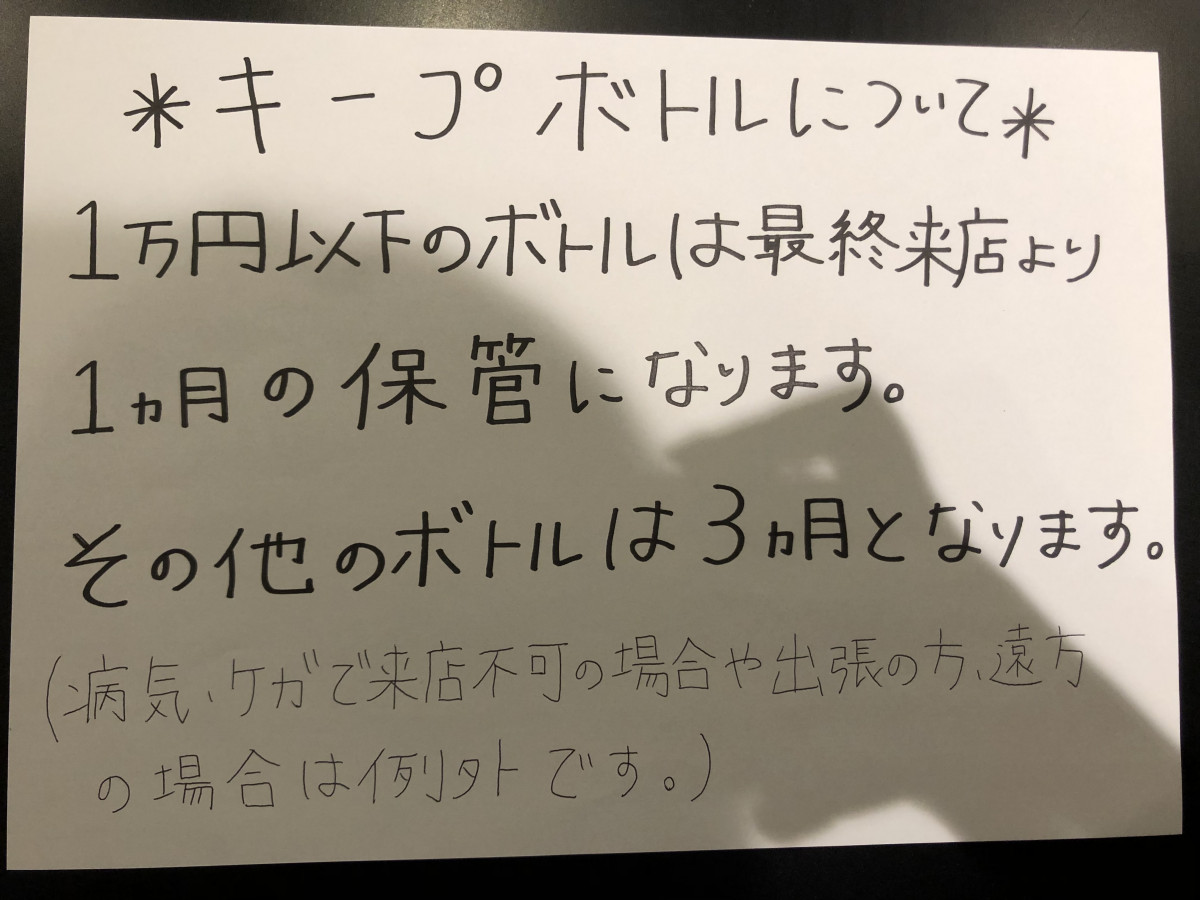 *キープボトルについて*
1万円以下のボトルは最終来店より
1ヵ月の保管になります。
その他のボトルは3ヵ月となります。
(病気、ケガで来店不可の場合や出張の方、遠方
の場合は例外です。)